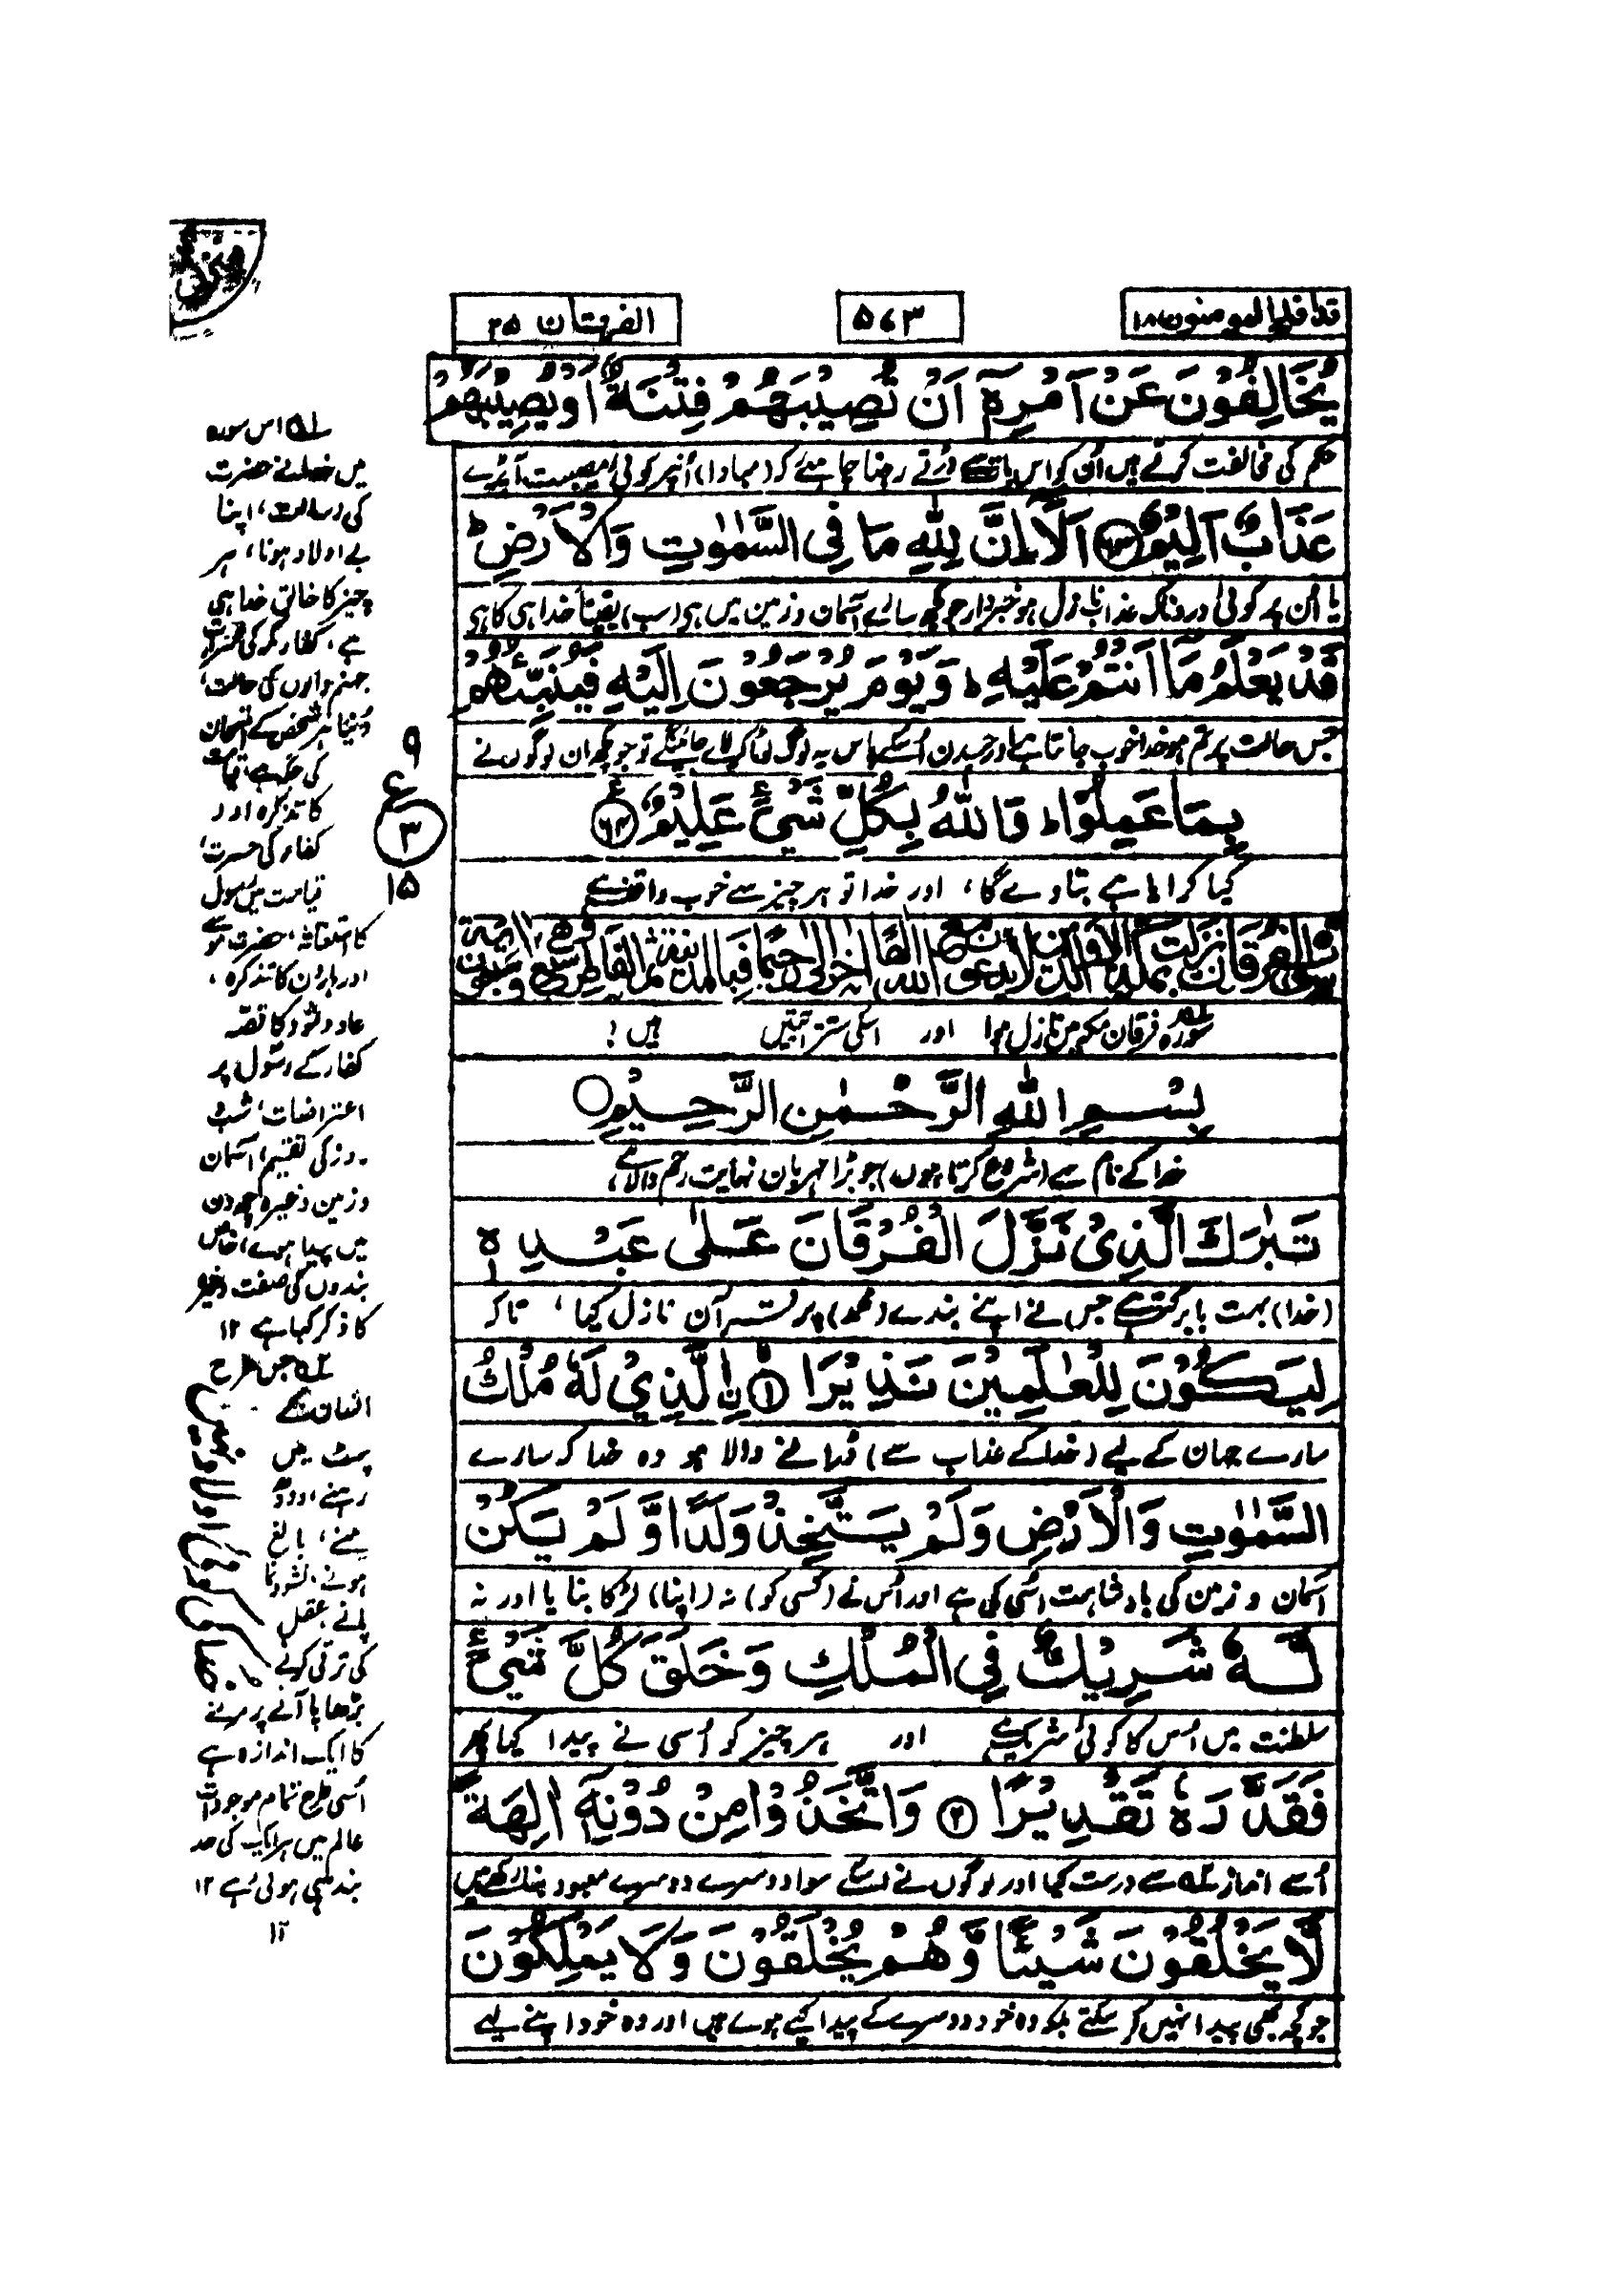 قد افلح المومنون ۱۸
۵۷۳
الفرقان ۲۵
يُخَالِفُوْنَ عَنْ اَمْرِهٖٓ اَنْ تُصِيْبَهُمْ فِتْنَةٌ اَوْ يُصِيْبَهُمْ
حکم کی مخالفت کرتے ہیں اُن کو اس بات سے ڈرتے رہنا چاہئے کہ (مبادا) اُنپر کوئی مصیبت آپڑے
عَذَابٌ اَلِيْمٌ ۶۳ اَلَآ اِنَّ لِلّٰهِ مَا فِى السَّمٰوٰتِ وَالْاَرْضِ ط
یا اُن پر کوئی دردناک عذاب نازل ہو خبردار جو کچھ سارے آسمان و زمین میں ہی (سب) یقیناً خدا ہی کا ہی
قَدْ يَعْلَمُ مَآ اَنْتُمْ عَلَيْهِ ط وَيَوْمَ يُرْجَعُوْنَ اِلَيْهِ فَيُنَبِّئُهُمْ
جس حالت پر تم ہو خدا خوب جانتا ہے اور جس دن اُسکے پاس یہ لوگ لوٹا کر لائے جائینگے تو جو کچھ ان لوگوں نے
بِمَا عَمِلُوْا ط وَاللّٰهُ بِكُلِّ شَىْءٍ عَلِيْمٌ ۶۴
کیا کرایا ہے بتا دے گا، اور خدا تو ہر چیز سے خوب واقف ہے
سورہ فرقان مکہ میں نازل ہوا اور اسکی ستتر آیتیں ہیں
بِسْمِ اللّٰهِ الرَّحْمٰنِ الرَّحِيْمِ
خدا کے نام سے (شروع کرتا ہوں) جو بڑا مہربان نہایت رحم والا ہے،
تَبٰرَكَ الَّذِىْ نَزَّلَ الْفُرْقَانَ عَلٰى عَبْدِهٖ
(خدا) بہت بابرکت ہے جس نے اپنے بندے (محمد) پر قرآن نازل کیا، تاکہ
لِيَكُوْنَ لِلْعٰلَمِيْنَ نَذِيْرًا ۱ نِ الَّذِىْ لَهٗ مُلْكُ
سارے جہان کے لیے (خدا کے عذاب سے) ڈرانے والا ہو وہ خدا کہ سارے
السَّمٰوٰتِ وَالْاَرْضِ وَلَمْ يَتَّخِذْ وَلَدًا وَّلَمْ يَكُنْ
آسمان و زمین کی بادشاہت اُسی کی ہے اور اُس نے (کسی کو) نہ (اپنا) لڑکا بنایا اور نہ
لَّهٗ شَرِيْكٌ فِى الْمُلْكِ وَخَلَقَ كُلَّ شَىْءٍ
سلطنت میں اُس کا کوئی شریک ہے اور ہر چیز کو اُسی نے پیدا کیا پھر
فَقَدَّرَهٗ تَقْدِيْرًا ۲ وَاتَّخَذُوْا مِنْ دُوْنِهٖٓ اٰلِهَةً
اُسے اندازے سے درست کیا اور لوگوں نے اسکے سوا دوسرے دوسرے معبود بنا رکھے ہیں
لَّا يَخْلُقُوْنَ شَيْئًا وَّهُمْ يُخْلَقُوْنَ وَلَا يَمْلِكُوْنَ
جو کچھ بھی پیدا نہیں کر سکتے بلکہ وہ خود دوسرے کے پیدا کیے ہوے ہیں اور وہ خود اپنے لیے
۹
ع
۳
۱۵
۱ اس سورہ
میں خدا نے حضرت
کی رسالت، اپنا
بے اولاد ہونا، ہر
چیز کا خالق خدا ہی
ہے، کفار مکہ کی
جہنم والوں کی حالت،
دُنیا ہر شخص کے امتحان
کی جگہ ہے، قیامت
کا تذکرہ اور
کفار کی حسرت،
قیامت میں رسول
کا استغاثہ، حضرت موسے
اور ہارون کا تذکرہ،
عاد و ثمود کا قصّہ
کفار کے رسول پر
اعتراضات، شب
روز کی تقسیم، آسمان
و زمین وغیرہ چھ دن
میں پیدا ہوے، خاص
بندوں کی صفت وغیرہ
کا ذکر کیا ہے ۱۲
۲ جس طرح
انسان کے
پیٹ میں
رہنے، دودھ
پینے، بالغ
ہونے، نشوونما
پانے، عقل
کی ترقی کرنے
بڑھاپا آنے پر مرنے
کا ایک اندازہ ہے
اُسی طرح تمام موجودات
عالم میں ہر ایک کی حد
بندھی ہوئی ہے ۱۲